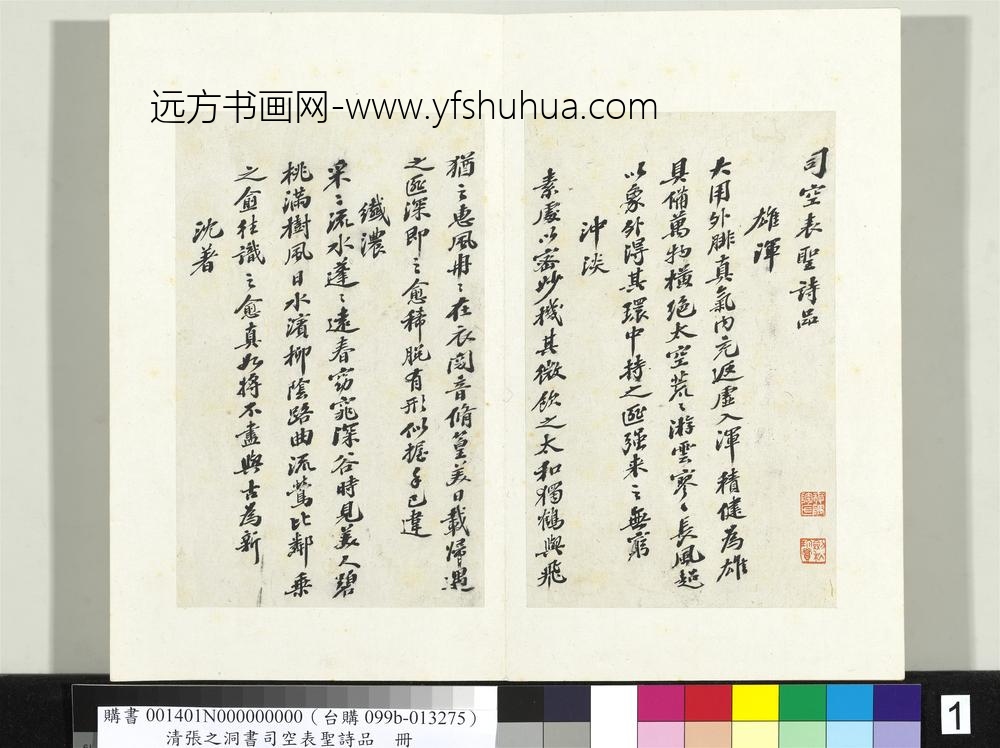 远方书画网-www.yfshuhua.com
司空表聖詩品
雄渾
大用外腓真氣內充返虛入渾積健為雄
具備萬物橫絕太空荒〻游雲寥〻長風超
以象外得其環中持之匪強来之無窮
沖淡
素處以密妙機其微飲之太和獨鶴與飛
猶之惠風冉〻在衣閱音脩篁美曰載歸遇
之匪深即之愈稀脫有形似握手已違
纖濃
采〻流水蓬〻遠春窈窕深谷時見美人碧
桃滿樹風日水濱柳陰路曲流鶯比鄰乗
之愈往識之愈真如將不盡與古為新
沈著
購書 001401N000000000（台購 099b-013275）
清張之洞書司空表聖詩品 冊
1